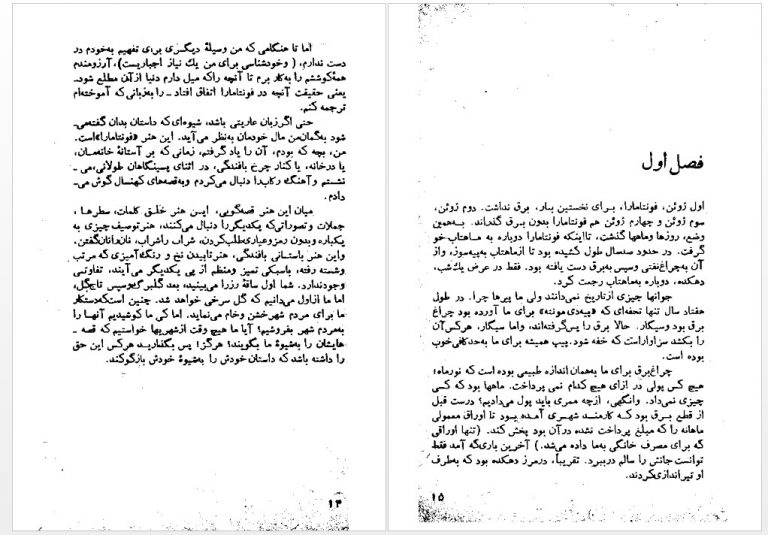 اما تا هنگامی که من وسیلهٔ دیگری برای تفهیم به‌خودم در
دست ندارم، (وخودشناسی برای من یك نیاز اجباریست)، آرزومندم
همهٔ کوششم را به‌کار برم تا آنچه راکه میل دارم دنیا ازآن مطلع شود-
یعنی حقیقت آنچه در فونتامارا اتفاق افتاد - را به‌زبانی‌که آموخته‌ام
ترجمه کنم.
حتی اگرزبان عاریتی باشد، شیوه‌ای که داستان بدان گفته‌می-
شود به‌گمان‌من مال خودمان به‌نظر می‌آید. این هنر «فونتامارا»است.
من، بچه که بودم، آن را یاد گرفتم، زمانی که بر آستانهٔ خانه‌مان،
یا درخانه، یا کنار چرخ بافندگی، در اثنای پسینگاهان طولانی، می-
نشستم وآهنگ رکابدا دنبال می‌کردم وبه‌قصه‌های کهنسال گوش می-
دادم.
میان این هنر قصه‌گویی، ایـن هنر خلـق کلمات، سطرها،
جملات وتصوراتی‌که یکدیگررا دنبال می‌کنند، هنرتوصیف‌چیزی به
یکباره وبدون رمزوعیاری‌طلب‌کردن، شراب راشراب، نان‌رانان‌گفتن.
واین هنر باستـانی بافندگی، هنرتابیدن نخ و رنگ‌آمیزی که مرتب
وشسته رفته، باسبکی تمیز ومنظم از پی یکدیگر می‌آیند، تفاوتـی
وجودندارد. شما اول ساقهٔ رزرا می‌بینید، بعد گلبرگ‌وسپس تاج‌گل،
اما ما ازاول می‌دانیم که گل سرخی خواهد شد. چنین است‌که‌دستکار
ما برای مردم شهرخشن وخام می‌نماید. اما کی ما کوشیدیم آنهـا را
به‌مردم شهر بفروشیم؟ آیا ما هیچ وقت ازشهریها خواستیم که قصه -
هایشان را به‌شیوهٔ ما بگویند؟ هرگز! پس بگذاریـد هرکس این حق
را داشته باشد که داستان خودش را به‌شیوهٔ خودش بازگوکند.
۱۴
فصل اول
اول ژوئن، فونتامارا، بـرای نخستین بـار، برق نداشت. دوم ژوئن،
سوم ژوئن و چهارم ژوئن هم فونتامارا بدون برق گذراند. بـه‌همین
وضع، روزها وماهها گذشت، تااینکه فونتامارا دوباره به مـاهتاب‌خو
گرفت. در حدود صدسال طول کشیده بود تا ازماهتاب به‌پیه‌سوز، واز
آن به‌چراغ‌نفتی وسپس به‌برق دست یافته بود. فقط در عرض یك‌شب،
دهکده، دوباره به‌ماهتاب رجعت کرد.
جوانها چیزی ازتاریخ نمی‌دانند ولی ما پیرها چرا. در طول
هفتاد سال تنها تحفه‌ای که «پیه‌دی‌مونته» برای ما آورده بود چراغ
برق بود وسیگار. حالا برق را پس‌گرفته‌اند، واما سیگار. هرکس‌آن
را بکشد سزاواراست که خفه شود. پیپ همیشه برای ما به‌حدکافی‌خوب
بوده است.
چراغ‌برق برای ما به‌همان اندازه طبیعی بوده است که نورماه؛
هیچ کس پولی در ازای هیچ کدام نمی پرداخت. ماهها بود که کسی
چیزی نمی‌داد. وانگهی، ازچه ممری باید پول می‌دادیم؟ درست قبل
از قطع بـرق بود کـه کارمنـد شهـری آمـده بـود تا اوراق معمولی
ماهانه را که مبلغ پرداخت نشده درآن بود پخش کند. (تنها اوراقی
که برای مصرف خانگی به‌ما داده می‌شد.) آخرین باری‌که آمد فقط
توانست‌جانش را سالم دربـرد. تقریباً، درمرز دهکده بود که به‌طرف
او تیراندازی‌کردند.
۱۵